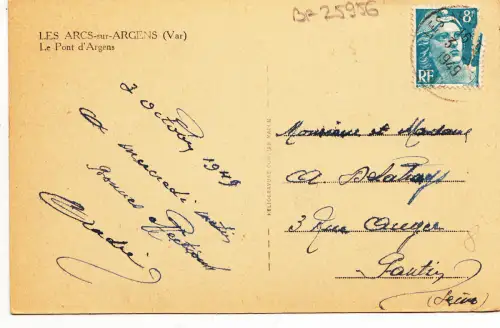 LES ARCS-sur-ARGENS (Var)
Le Pont d'Argens
BR 25956
8F
RF
1949
3 Octobre 1949
A mercredi matin
Bonnes
André
HELIOGRAVURE
Monsieur et Madame
A Delahaye
3 Rue Auger
Pantin
(Seine)